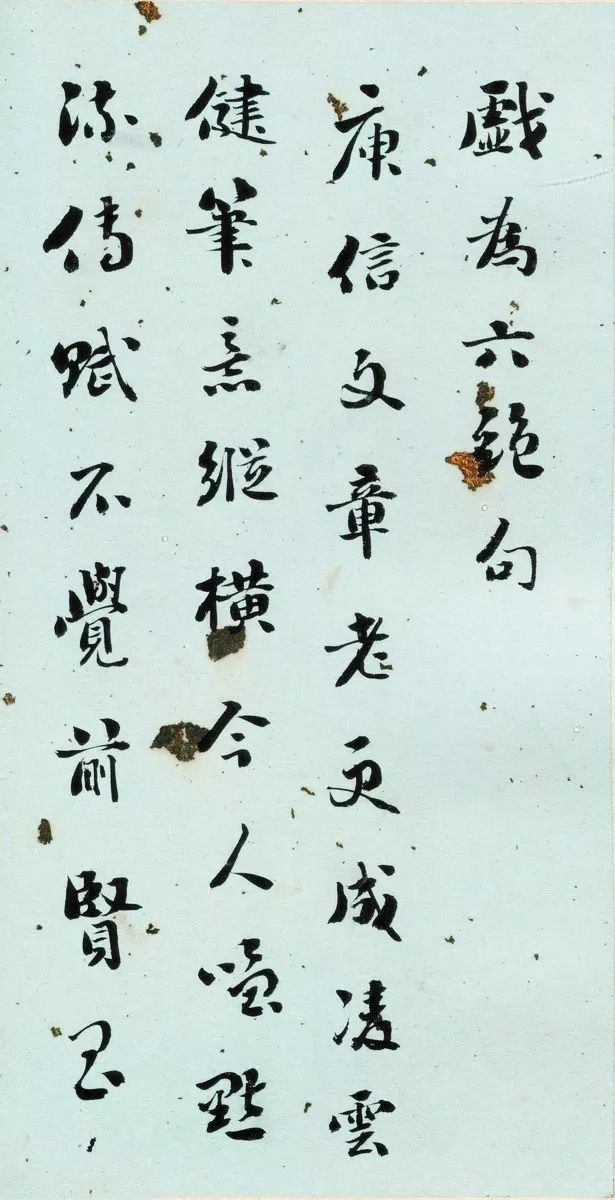 戲為六絶句
庾信文章老更成凌雲
健筆意縱橫今人嗤點
流傳賦不覺前賢畏